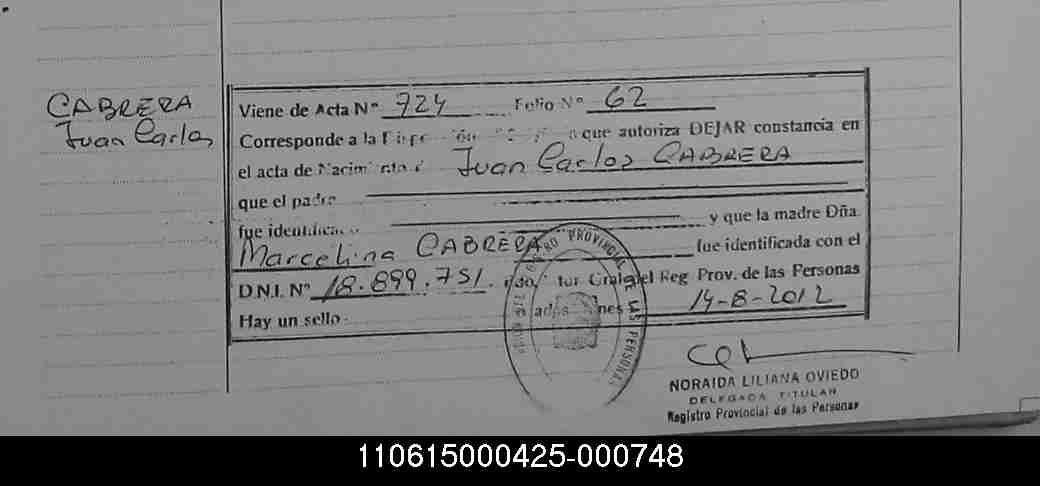 CABRERA
Juan Carlos
Viene de Acta Nº 724 Folio Nº 62
Corresponde a la que autoriza DEJAR constancia en
el acta de Nacimiento Juan Carlos CABRERA
que el padre
fue y que la madre Dña.
Marcelina CABRERA fue identificada con el
D.N.I. Nº 18.899.751. Gral. del Reg. Prov. de las Personas
Hay un sello 14-8-2012
REGISTRO PROVINCIAL DE LAS PERSONAS
NORAIDA LILIANA OVIEDO
DELEGADA TITULAR
Registro Provincial de las Personas
110615000425-000748